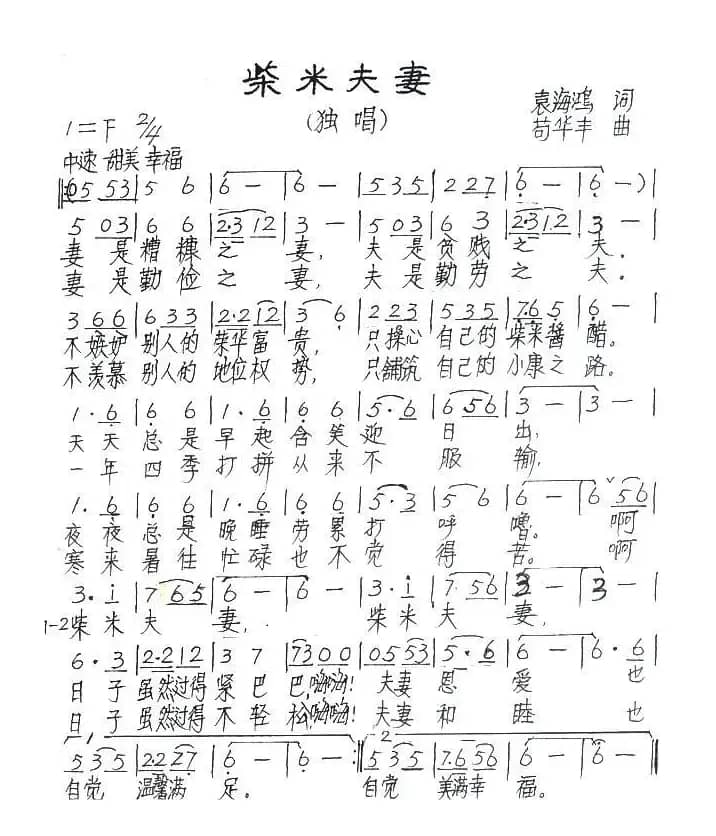 柴米夫妻
(独唱)
袁海鸿 词
苟华丰 曲
1=F 2/4
中速 甜美 幸福
05 53 | 5 6 | 6 - | 6 - | 535 | 227 | 6 - | 6 - ) |
5 03 | 6 6 | 2·312 | 3 - | 5 03 | 6 3 | 2·312 | 3 - |
妻是糟糠之妻,夫是贫贱之夫。
妻是勤俭之妻,夫是勤劳之夫。
3 66 | 633 | 2·212 | 3 6 | 223 | 535 | 7·65 | 6 - |
不嫉妒别人的荣华富贵,只操心自己的柴米酱醋。
不羡慕别人的地位权势,只铺筑自己的小康之路。
1·6 | 6 6 | 1·6 | 6 6 | 5·6 | 656 | 3 - | 3 - |
天天总是早起含笑迎日出,
一年四季打拼从来不服输,
1·6 | 6 6 | 1·6 | 6 6 | 5·3 | 5 6 | 6 - | 6 ˅56 |
夜夜总是晚睡劳累打呼噜。啊
寒来暑往忙碌也不觉得苦。啊
3·i | 7 65 | 6 - | 6 - | 3·i | 7·56 | 3 - | 3 - |
1-2柴米夫妻,柴米夫妻,
6·3 | 2·212 | 3 7 | 7300 | 0553 | 5·6 | 6 - | 6·6 |
日子虽然过得紧巴巴,嗨嗨!夫妻恩爱也
日子虽然过得不轻松嗨嗨!夫妻和睦也
1. 2
535 | 2·227 | 6 - | 6 - :| 535 | 7·656 | 6 - | 6 - ||
自觉温馨满足。自觉美满幸福。